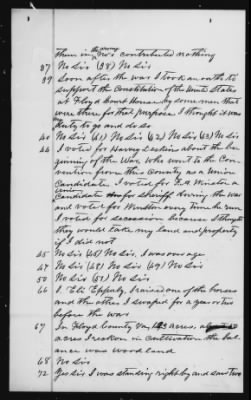 them in the army nor contributed nothing
37 No Sir (38) No Sir
39 Soon after the war I took an oath to
support the Constitution of the United States
at Floyd Court House by some men that
were there for that purpose. I thought it was
duty to go and do so
40 No Sir (41) No Sir (42) No Sir (43) No Sir
44 I voted for Harvey Deskins about the be-
ginning of the War who went to the Con-
vention from this County as a Union
Candidate. I voted for Winston a
Union Candidate for Sheriff during the war
and voted for Winston every time he run
I voted for secession because I thought
they would take my land and property
if I did not
45 No Sir (46) No Sir. I was over age
47 No Sir (48) No Sir (49) No Sir
50 No Sir (51) No Sir
66 I. Eli Epperly. I raised one of the horses
and the other I swaped for a year or two
before the war
67 In Floyd County Va, 143 acres,
acres I reckon in cultivation the bal-
ance was woodland
68 No Sir
72 Yes Sir I was standing right by and saw two